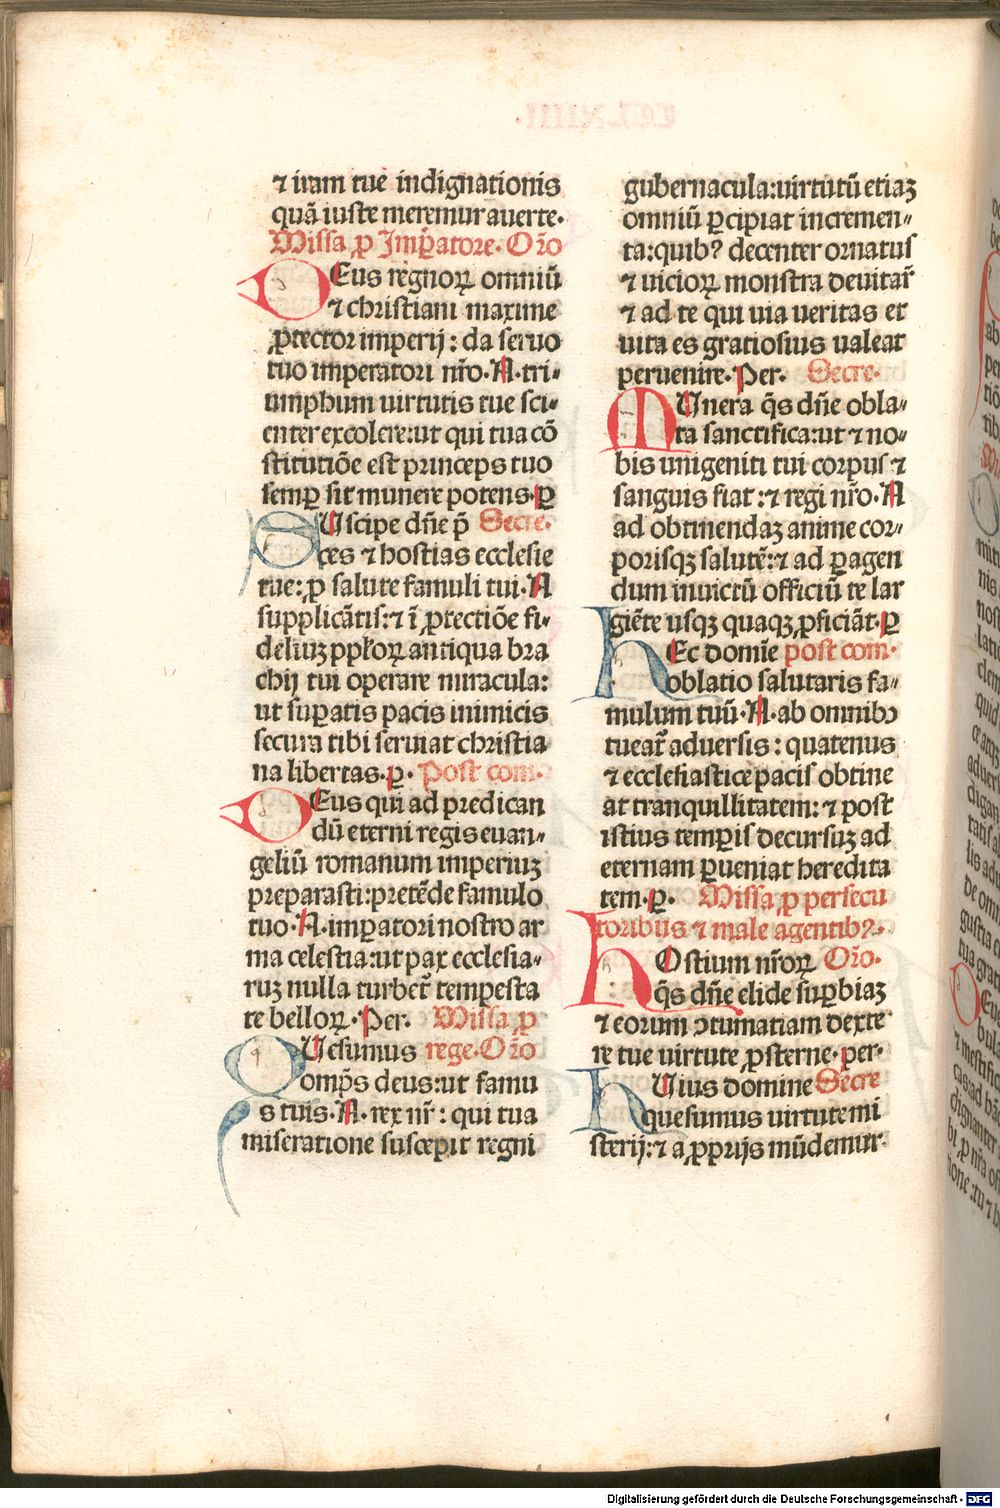 ⁊ iram tue indignationis
quā iuste meremur auerte.
Missa ꝓ Imꝑatore. Orō
DEus regnoꝝ omniū
⁊ christiani maxime
ꝓtector imperij : da seruo
tuo imperatori nr̄o. N. tri-
umphum uirtutis tue sci-
enter excolere:ut qui tua cō
stitutiōe est princeps tuo
semꝑ sit munere potens. ꝑ
SUscipe dn̄e p̄ Secre.
ces ⁊ hostias ecclesie
tue: ꝓ salute famuli tui. N
supplicātis:⁊ ī ꝓtectiōe fi-
deliuꝫ ppl'oꝝ antiqua bra
chij tui operare miracula:
ut suꝑatis pacis inimicis
secura tibi seruiat christia
na libertas. ꝑ. Post com.
DEus qui ad predican
dū eterni regis euan-
geliū romanum imperiuꝫ
preparasti:pretēde famulo
tuo. N. imꝑatori nostro ar
ma celestia:ut pax ecclesia-
ruꝫ nulla turbet᷑ tempesta
te belloꝝ. Per. Missa ꝓ
QUesumus rege. Orō
omp̄s deus:ut famu
s tuus. N. rex nr̄ : qui tua
miseratione suscepit regni
gubernacula:uirtutū etiaꝫ
omniū ꝑcipiat incremen-
ta:quibꝰ decenter ornatus
⁊ uicioꝝ monstra deuitar̄
⁊ ad te qui uia ueritas et
uita es gratiosius ualeat
peruenire. Per. Secre.
MUnera q̄s dn̄e obla-
ta sanctifica:ut ⁊ no-
bis unigeniti tui corpus ⁊
sanguis fiat : ⁊ regi nr̄o. N
ad obtinendaꝫ anime cor-
porisqꝫ salutē:⁊ ad ꝑagen
dum iniunctū officiū te lar
giēte usqꝫ quaqꝫ ꝓficiāt. ꝑ
HEc domīe post com.
oblatio salutaris fa-
mulum tuū. N. ab omnibꝰ
tueat᷑ aduersis : quatenus
⁊ ecclesiastice pacis obtine
at tranquillitatem: ⁊ post
istius temꝑis decursuꝫ ad
eternam ꝑueniat heredita
tem. ꝑ. Missa ꝓ persecu
toribus ⁊ male agentibꝰ.
HOstium nr̄oꝝ Orō.
q̄s dn̄e elide suꝑbiaꝫ
⁊ eorum ↄtumatiam dexte
re tue uirtute ꝓsterne. per.
HUius domine Secre
quesumus uirtute mi
sterij:⁊ a ꝓprijs mūdemur